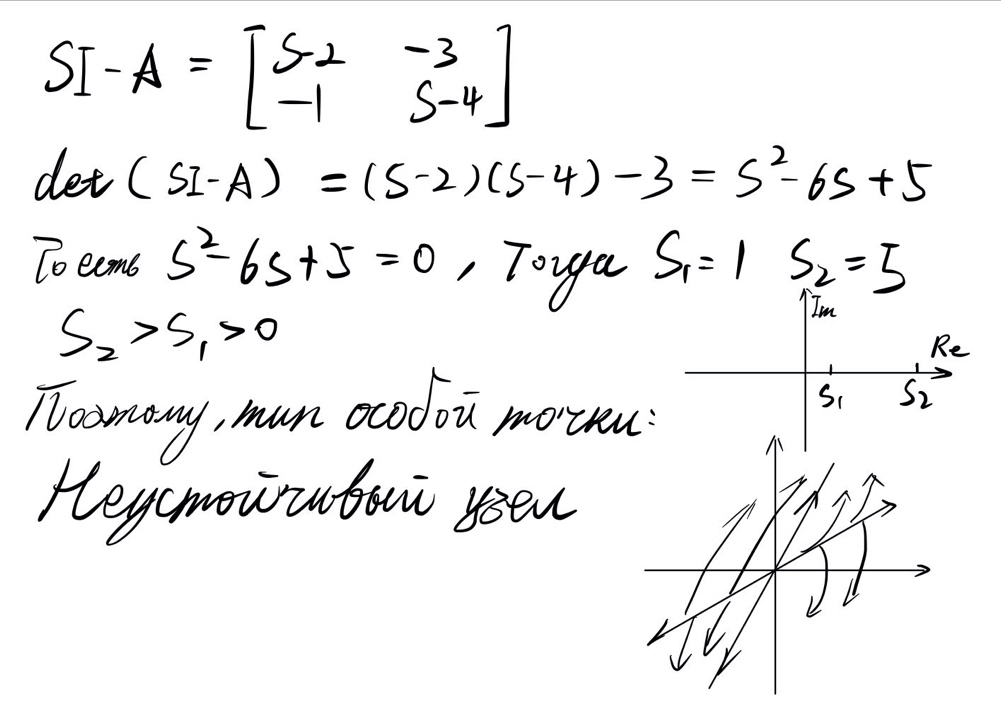 SI-A = [S-2 -3
-1 S-4]
det(SI-A) = (S-2)(S-4)-3 = S²-6S+5
То есть S²-6S+5=0, Тогда S₁=1 S₂=5
S₂>S₁>0
Im
Re
S₁ S₂
Поэтому, тип особой точки:
Неустойчивый узел